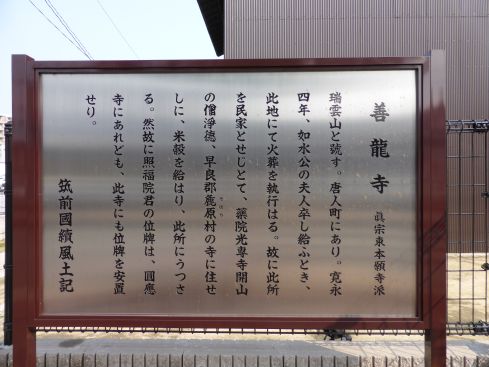 善龍寺 眞宗東本願寺派
瑞雲山と號す。唐人町にあり。寛永
四年、如水公の夫人卒し給ふとき、
此地にて火葬を執行はる。故に此所
を民家とせじとて、薬院光専寺開山
の僧淨徳、早良郡鹿原村の寺に住せ
しに、米穀を給はり、此所にうつさ
る。然故に照福院君の位牌は、圓應
寺にあれども、此寺にも位牌を安置
せり。
筑前國續風土記